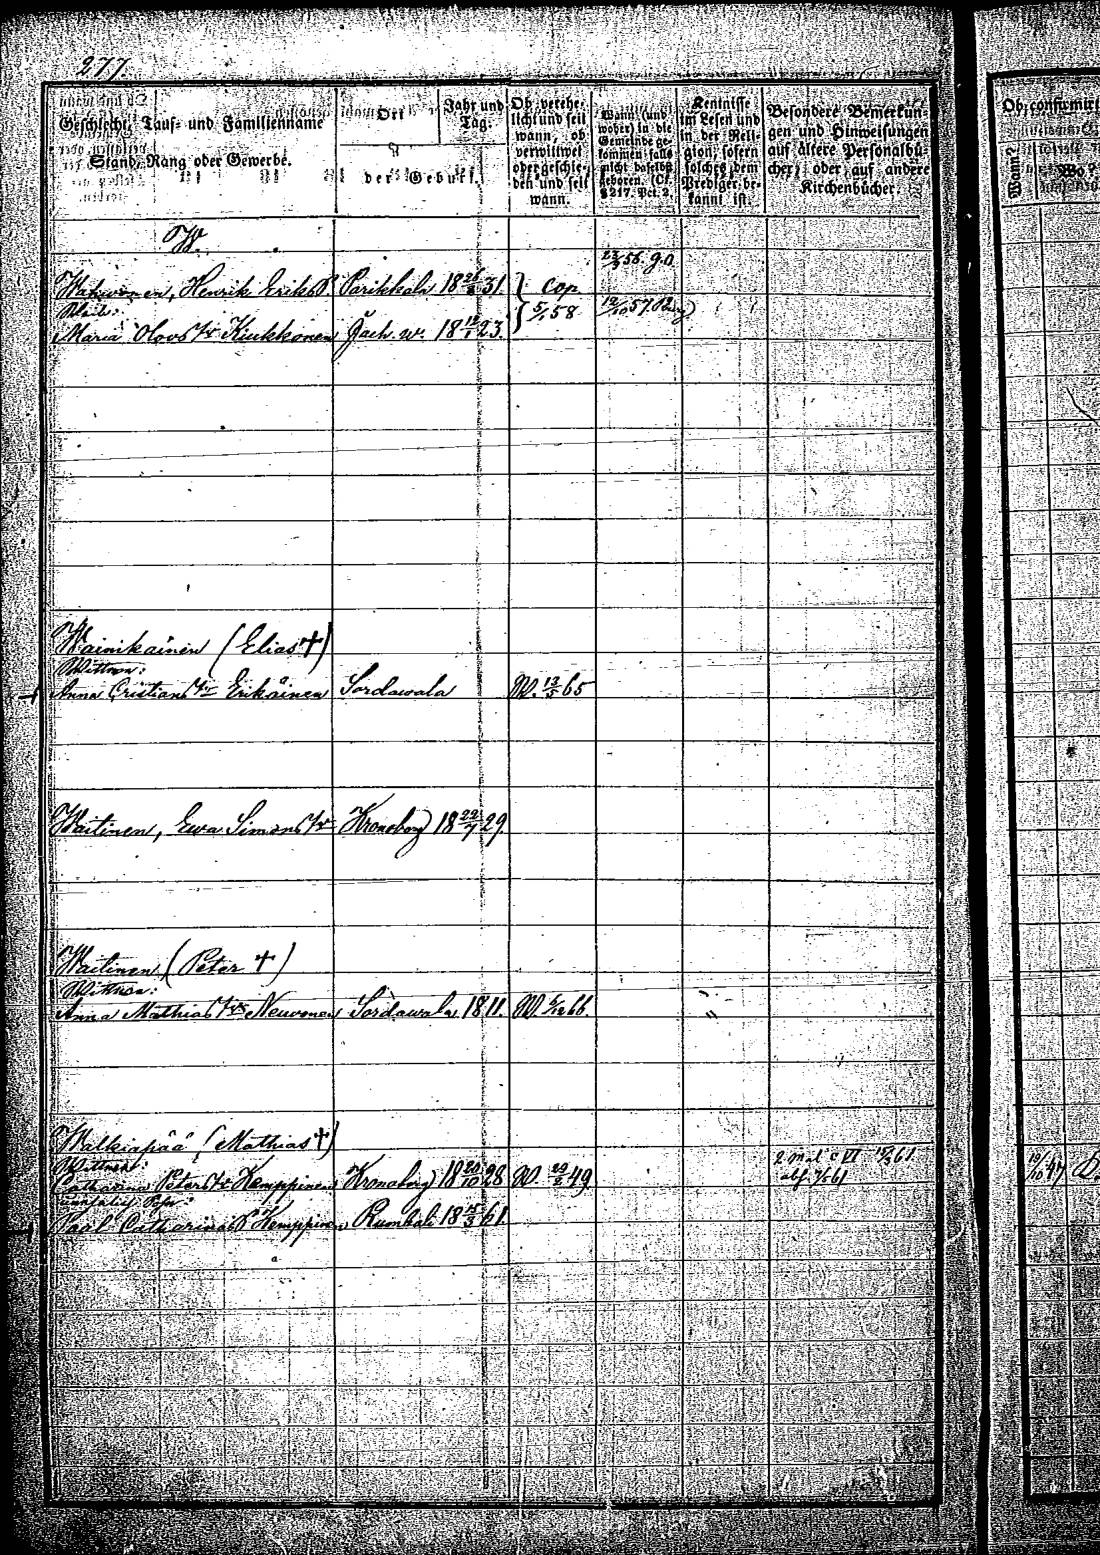 277.
Geschlecht, Tauf- und Familienname
Stand, Rang oder Gewerbe.
Ort
Jahr und Tag:
der Geburt.
Ob verehe-
licht und seit
wann, ob
verwittwet
oder geschie-
den und seit
wann.
Wann (und
woher) in die
Gemeinde ge-
kommen, falls
nicht daselbst
geboren. (Cf.
§ 217. Pct. 2.
Kentnisse
im Lesen und
in der Reli-
gion, sofern
solches dem
Prediger be-
kannt ist.
Besondere Bemerkun-
gen und Hinweisungen
auf ältere Personalbü-
cher, oder auf andere
Kirchenbücher.
Ob confirmirt
Wann?
Wo?
W.
23/3 56. g.a.
Henrik Eriks S. Parikkala 18 26/8 31. cop.
Weib: 5/1 58 12/10 57.
Maria Olovs tr Kiukkonen Jaak. w. 18 12/1 23.
Wainikainen (Elias †)
Wittwe:
Anna Cristians tr Erikäinen Sordawala W. 13/5 65
Waitinen, Ewa Simons tr Kronoborg 18 22/7 29.
Waitinen (Peter †)
Wittwe:
Anna Mathias tr Neuvonen Sordawala 1811. W. 6/12 66.
Walkiapää (Mathias †)
Wittwe: 2 mal c VI 12/3 61.
Catharina Peters tr Kemppinen Kronoborg 18 20/10 28 W. 29/2 49 abs. 7/5 61 47
Paal Catharinas S Kemppinen Rumbali 18 15/3 61.